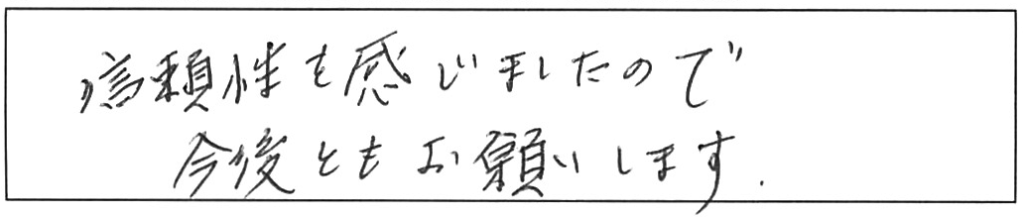 信頼性を感じましたので
今後ともお願いします.